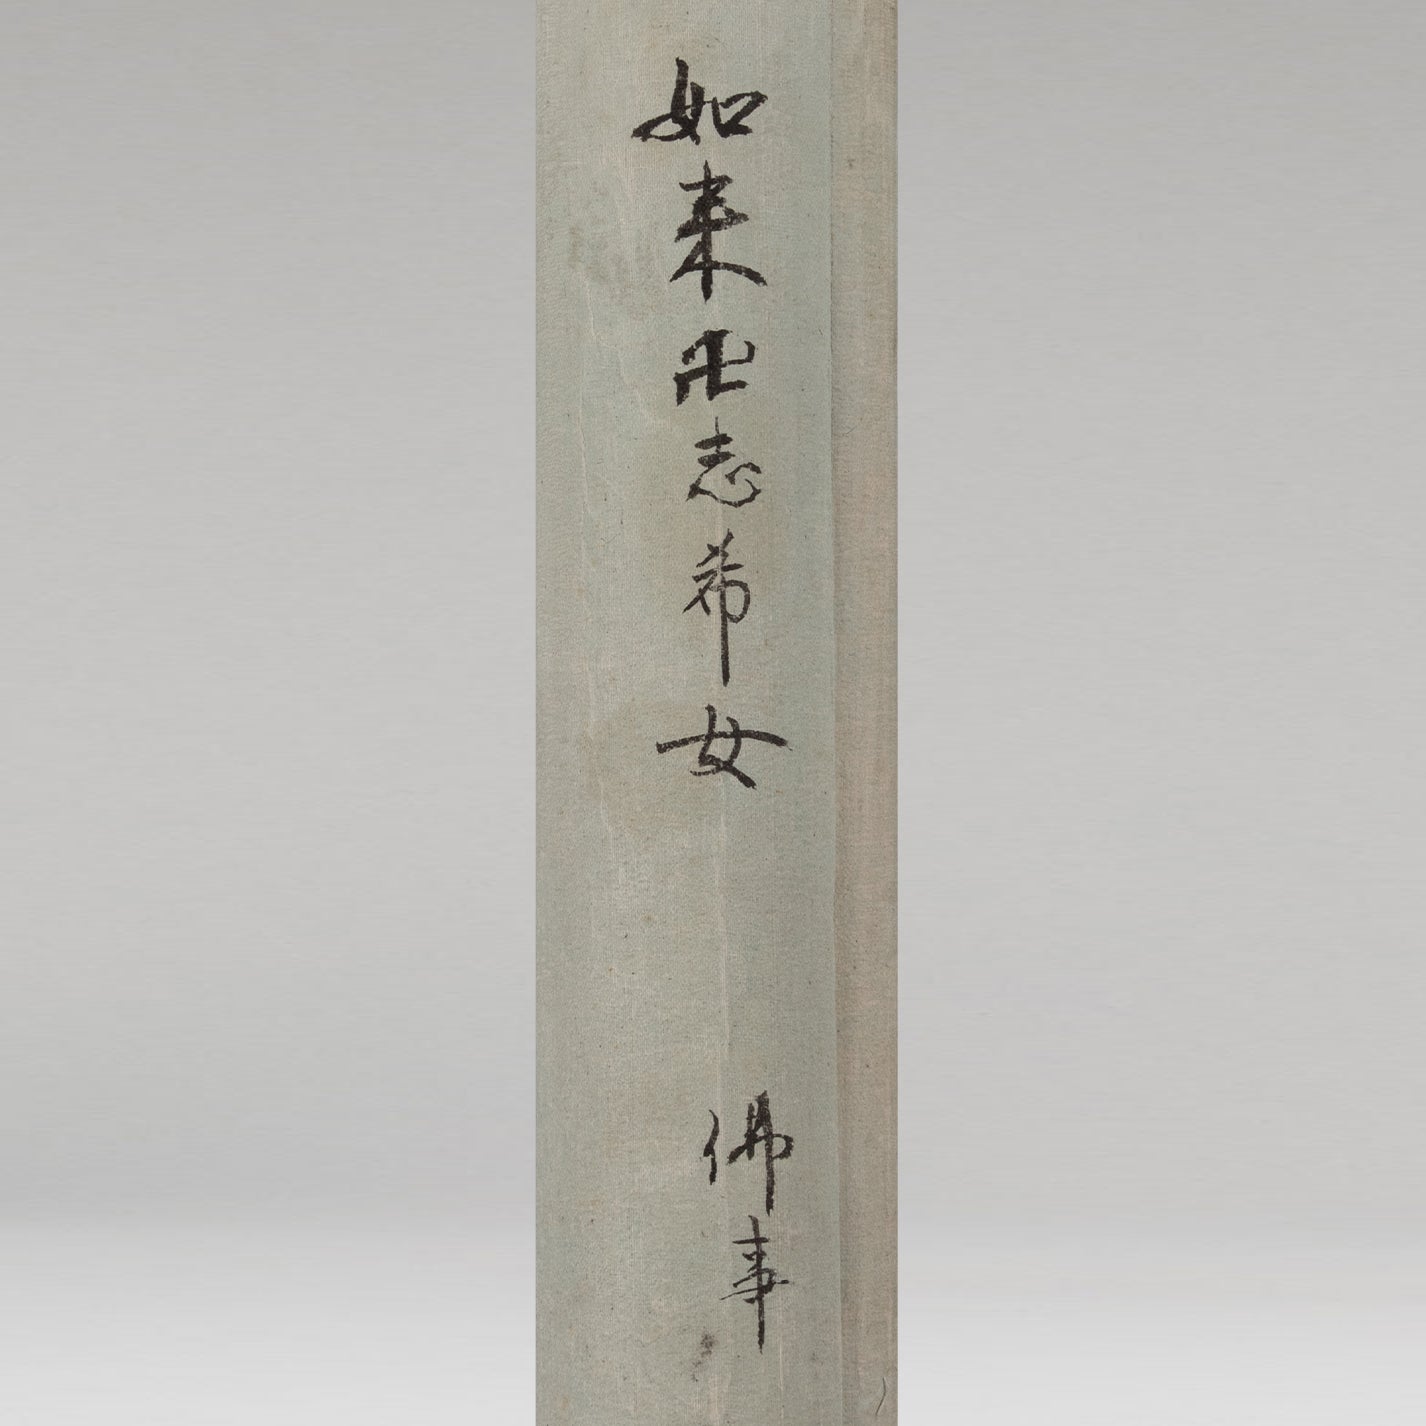 如来卍志希女
佛事